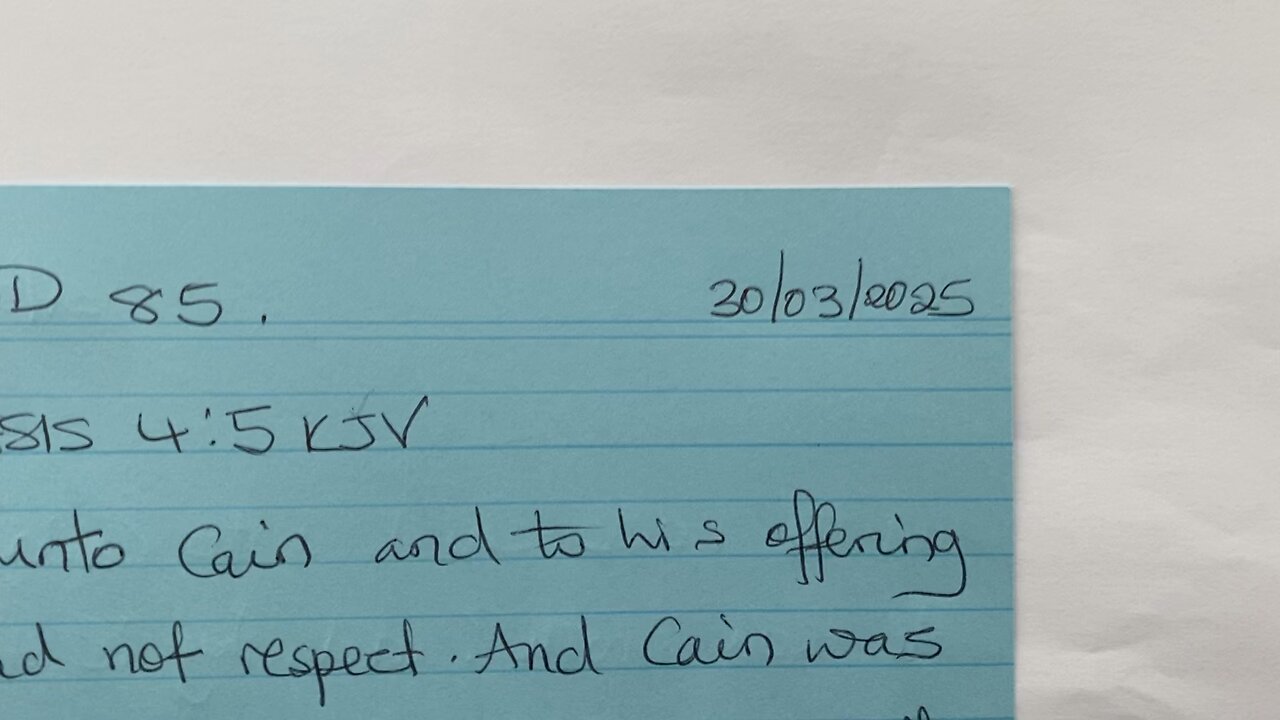 D 85. 30/03/2025
SIS 4:5 KJV
unto Cain and to his offering
d not respect. And Cain was